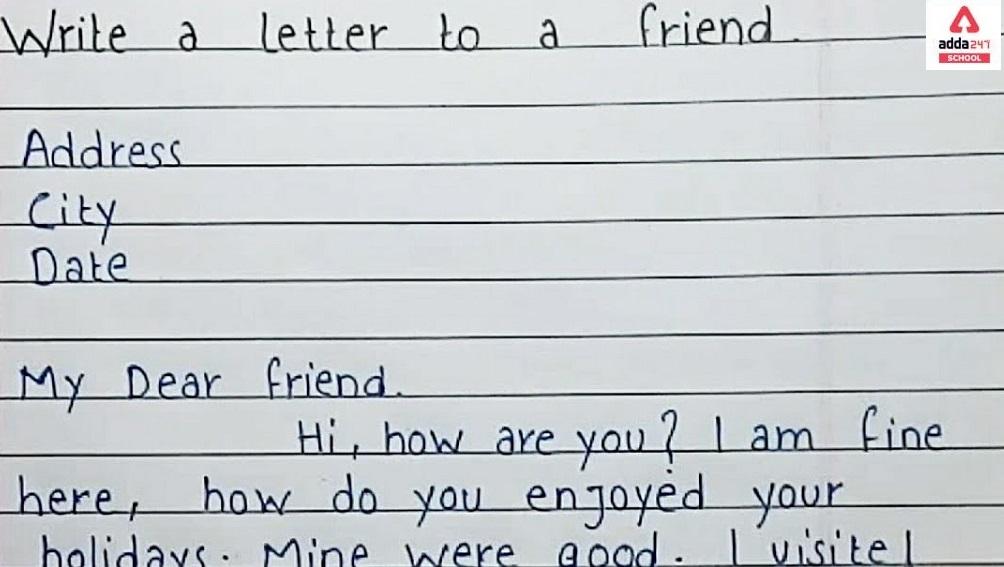 Write a letter to a friend.
adda247
SCHOOL
Address
City
Date
My Dear friend.
Hi, how are you? I am fine
here, how do you enjoyed your
holidays. Mine were good. I visite